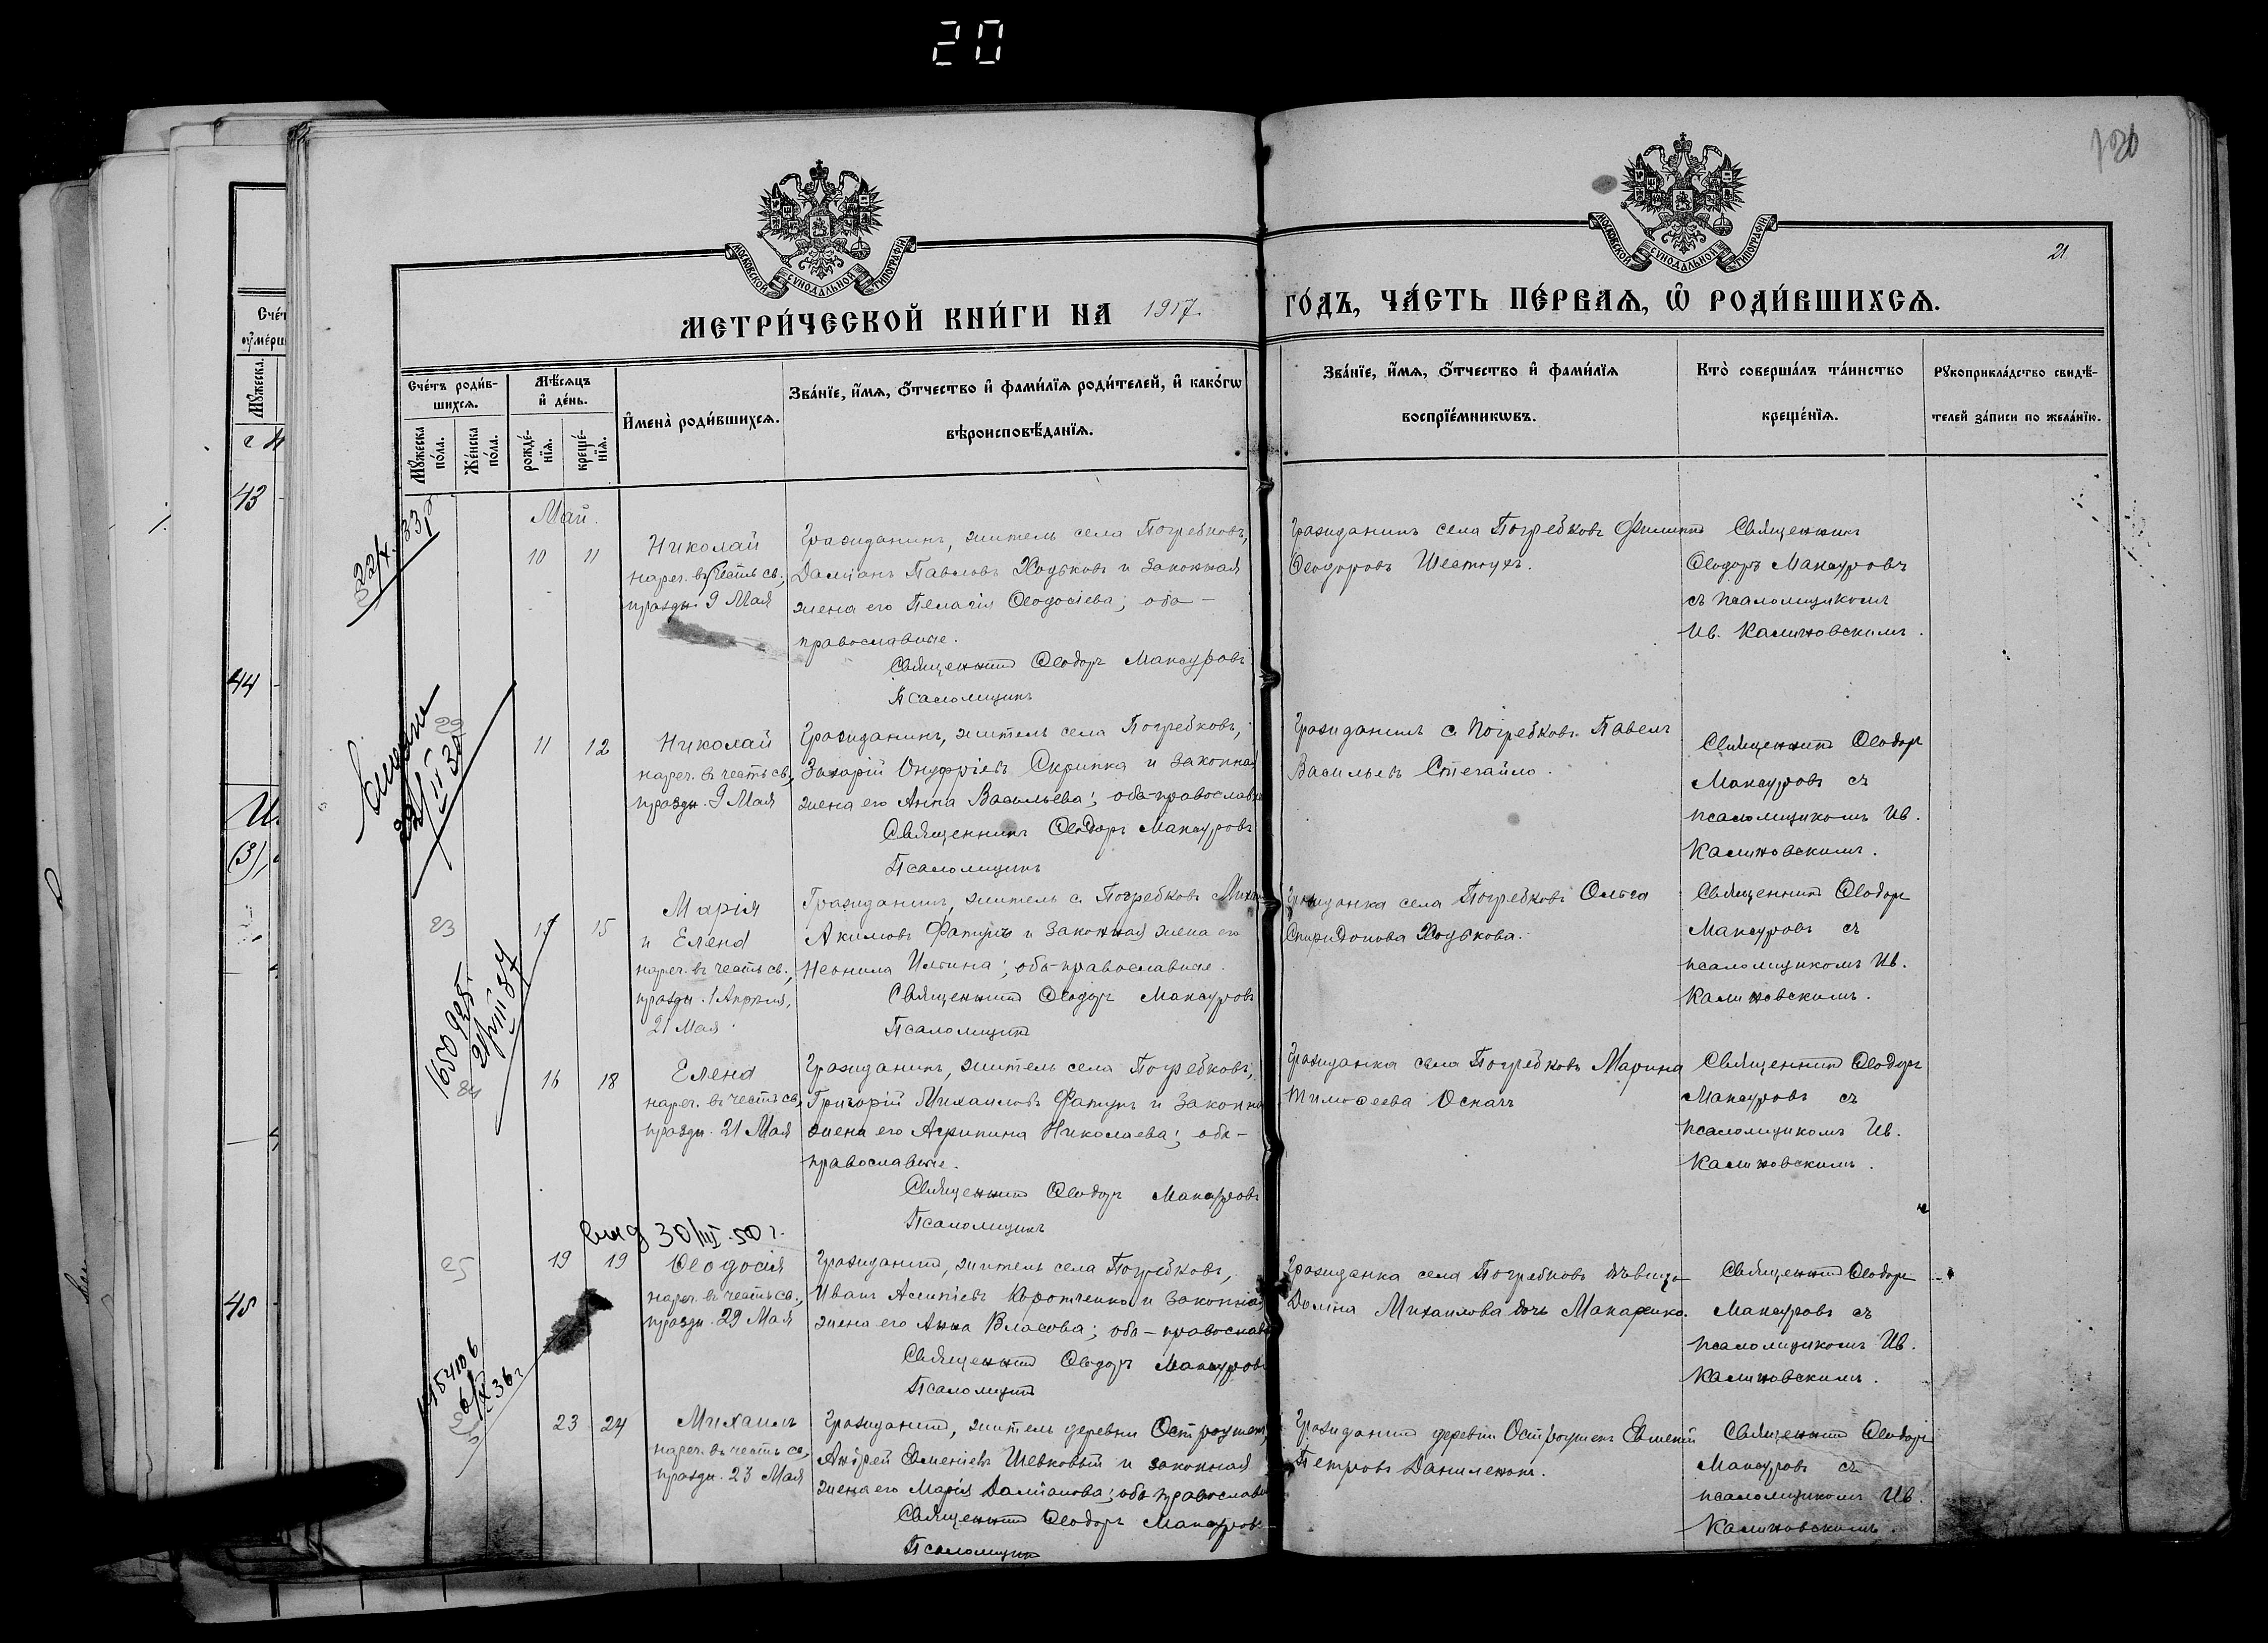 20
120
21
МОСКОВСКОЙ СУНОДАЛЬНОЙ ТИПОГРАФІИ
МОСКОВСКОЙ СУНОДАЛЬНОЙ ТИПОГРАФІИ
МЕТРИ́ЧЕСКОЙ КНИ́ГИ НА 1917. ГО́ДЪ, ЧА́СТЬ ПЕ́РВАѦ, Ѿ РОДИ́ВШИХСѦ.
Сче́тъ роди́в-
шихсѧ.
Мꙋжеска по́ла.
Же́нска по́ла.
Мѣ́сѧцъ
и҆ де́нь.
рожде́-
нїѧ.
креще́-
нїѧ.
И҆мена̀ роди́вшихсѧ.
Зва́нїе, и҆́мѧ, ѻ҆́тчество и҆ фами́лїѧ роди́телей, и҆ како́гѡ
вѣроисповѣ́данїѧ.
Зва́нїе, и҆́мѧ, ѻ҆́тчество и҆ фами́лїѧ
воспрїе́мникѡвъ.
Кто̀ соверша́лъ та́инство
креще́нїѧ.
Рꙋкоприкла́дство свидѣ́-
телей за́писи по жела́нїю.
43
44
45
Май.
10 11
Николай
нареч. въ честь св.,
праздн. 9 Мая
Гражданинъ, житель села Погребковъ,
Даміанъ Павловъ Ходьковъ и законная
жена его Пелагія Ѳеодосіева; оба -
православные.
Священникъ Ѳеодоръ Макауровъ
Псаломщикъ
Гражданинъ села Погребковъ Филиппъ
Ѳеодоровъ Шестухъ.
Священникъ
Ѳеодоръ Макауровъ
съ псаломщикомъ
Ив. Калиновскимъ.
11 12
Николай
нареч. въ честь св.,
праздн. 9 Мая
Гражданинъ, житель села Погребковъ,
Захарій Онуфріевъ Скрипка и законная
жена его Анна Васильева; оба-православн
Священникъ Ѳеодоръ Макауровъ
Псаломщикъ
Гражданинъ с. Погребковъ Павелъ
Васильевъ Стегайло.
Священникъ Ѳеодоръ
Макауровъ съ
псаломщикомъ Ив.
Калиновскимъ.
23
15
Марія
и Елена
нареч. въ честь св.,
праздн. 1 Апрѣля,
21 Мая.
Гражданинъ, житель с. Погребковъ
Акимовъ Фатунъ и законная жена его
Неонила Ильина; оба-православные.
Священникъ Ѳеодоръ Макауровъ
Псаломщикъ
Гражданка села Погребковъ Ольга
Спиридонова Ходькова.
Священникъ Ѳеодоръ
Макауровъ съ
псаломщикомъ Ив.
Калиновскимъ.
24
16 18
Елена
нареч. въ честь св.,
праздн. 21 Мая
Гражданинъ, житель села Погребковъ,
Григорій Михаиловъ Фатунъ и законна
жена его Агрипина Николаева; оба-
православные.
Священникъ Ѳеодоръ Макауровъ
Псаломщикъ
Гражданка села Погребковъ Марина
Тимоѳеева
Священникъ Ѳеодоръ
Макауровъ съ
псаломщикомъ Ив.
Калиновскимъ.
30/III 50 г.
25
19 19
Ѳеодосія
нареч. въ честь св.,
праздн. 29 Мая
Гражданинъ, житель села Погребковъ,
Иванъ Коротченко и законная
жена его Анна Власова; оба-православн
Священникъ Ѳеодоръ Макауровъ
Псаломщикъ
Гражданка села Погребковъ дѣвица
Домна Михаилова дочь Макаренко.
Священникъ Ѳеодоръ
Макауровъ съ
псаломщикомъ Ив.
Калиновскимъ.
23 24
Михаилъ
нареч. въ честь св.,
праздн. 23 Мая
Гражданинъ, житель деревни
Андрей Евменіевъ Шевковый и законная
жена его Марія Даміанова; оба православн
Священникъ Ѳеодоръ Макауров
Псаломщикъ
Гражданинъ деревни Евменій
Петровъ Даниленокъ.
Священникъ Ѳеодоръ
Макауровъ съ
псаломщикомъ Ив.
Калиновскимъ.